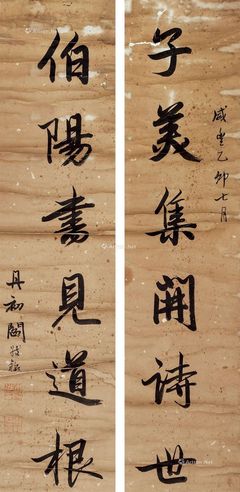 咸豐乙卯七月
子美集開詩世
伯陽書見道根
丹初閻敬銘